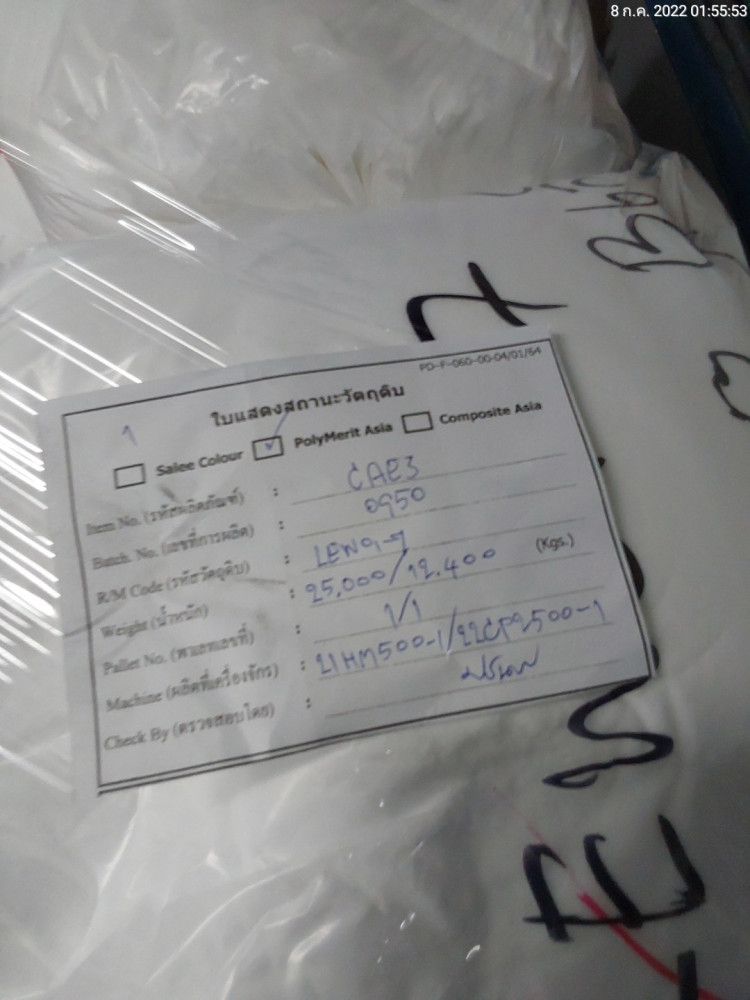 8 ก.ค. 2022 01:55:53
PD-F-060-00-04/01/64
ใบแสดงสถานะวัตถุดิบ
Salee Colour PolyMerit Asia Composite Asia
Item No. (รหัสผลิตภัณฑ์) : CAE3
Batch. No. (เลขที่การผลิต) : 0950
R/M Code (รหัสวัตถุดิบ) :
Weight (น้ำหนัก) : 25,000/12.400 (Kgs.)
Pallet No. (พาเลทเลขที่) : 1/1
Machine (ผลิตที่เครื่องจักร) : 21HM500-1/22CF2500-1
Check By (ตรวจสอบโดย) :